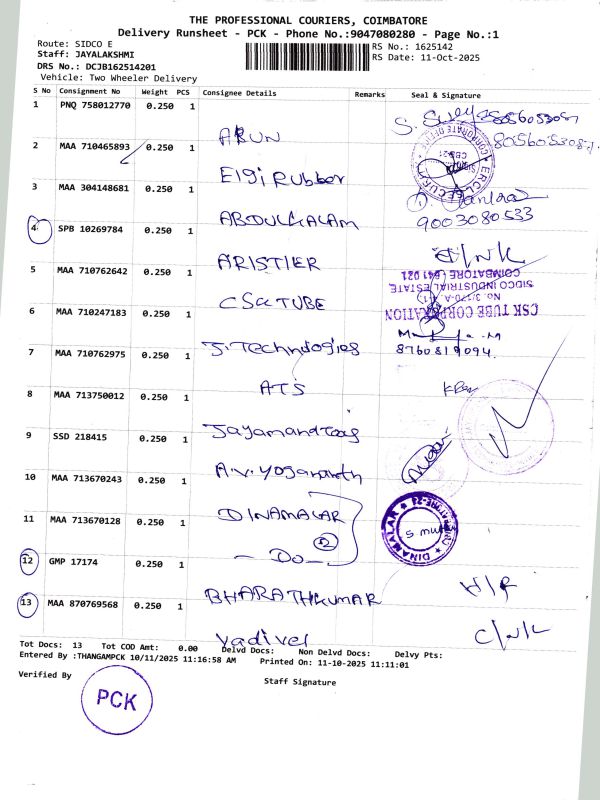 THE PROFESSIONAL COURIERS, COIMBATORE
Delivery Runsheet - PCK - Phone No.:9047080280 - Page No.:1
Route: SIDCO E
Staff: JAYALAKSHMI
DRS No.: DCJB162514201
Vehicle: Two Wheeler Delivery
RS No.: 1625142
RS Date: 11-Oct-2025
S No Consignment No Weight PCS Consignee Details Remarks Seal & Signature
1 PNQ 758012770 0.250 1 ARUN
8056053081
2 MAA 710465893 0.250 1 Elgi Rubber
3 MAA 304148681 0.250 1 ABDULKALAM
9003080533
4 SPB 10269784 0.250 1 ARISTIER
D/N/K
5 MAA 710762642 0.250 1 CSK TUBE
CSK TUBE CORPORATION
SIDCO INDUSTRIAL ESTATE
COIMBATORE 641 021
6 MAA 710247183 0.250 1 J. Technologies
8760819094.
7 MAA 710762975 0.250 1 ATS
8 MAA 713750012 0.250 1
9 SSD 218415 0.250 1
10 MAA 713670243 0.250 1 DINAMALAR
DINAMALAR
11 MAA 713670128 0.250 1 - Do -
12 GMP 17174 0.250 1 BHARATHKUMAR
13 MAA 870769568 0.250 1 Vadivel
C/N/K
Tot Docs: 13 Tot COD Amt: 0.00 Delvd Docs: Non Delvd Docs: Delvy Pts:
Entered By :THANGAMPCK 10/11/2025 11:16:58 AM Printed On: 11-10-2025 11:11:01
Verified By
Staff Signature
PCK